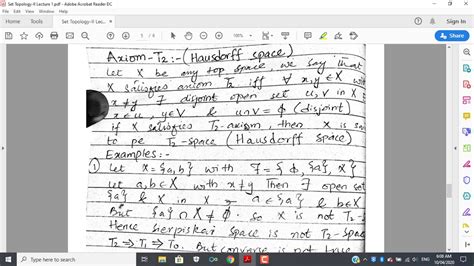 Set Topology-II Lecture 1.pdf - Adobe Acrobat Reader DC
File Edit View Window Help
Home Tools Set Topology-II Lec... ×
Sign In
1 / 8
Axiom-T2:- (Hausdorff space)
Let X be any top space, we say that
X satisfies axiom T2 iff ∀ x,y ∈ X with
x≠y ∃ disjoint open set u, v in X
x∈u, y∈V & u∩v = ϕ (disjoint)
if X satisfies T2-axiom, then X is sa
to be T2-space (Hausdorff space)
Examples:-
① Let X = {a,b} with J = { ϕ, {a}, X}
Let a,b∈X with x≠y Then ∃ open set
{a} & X in X a∈{a} & b∈X
But {a} ∩ X ≠ ϕ. so X is not T2-
Hence berpiskai space is not T2-Space
T2 ⇒ T1 ⇒ T0. But converse is not true
Type here to search
ENG
6:08 AM
10/04/2020